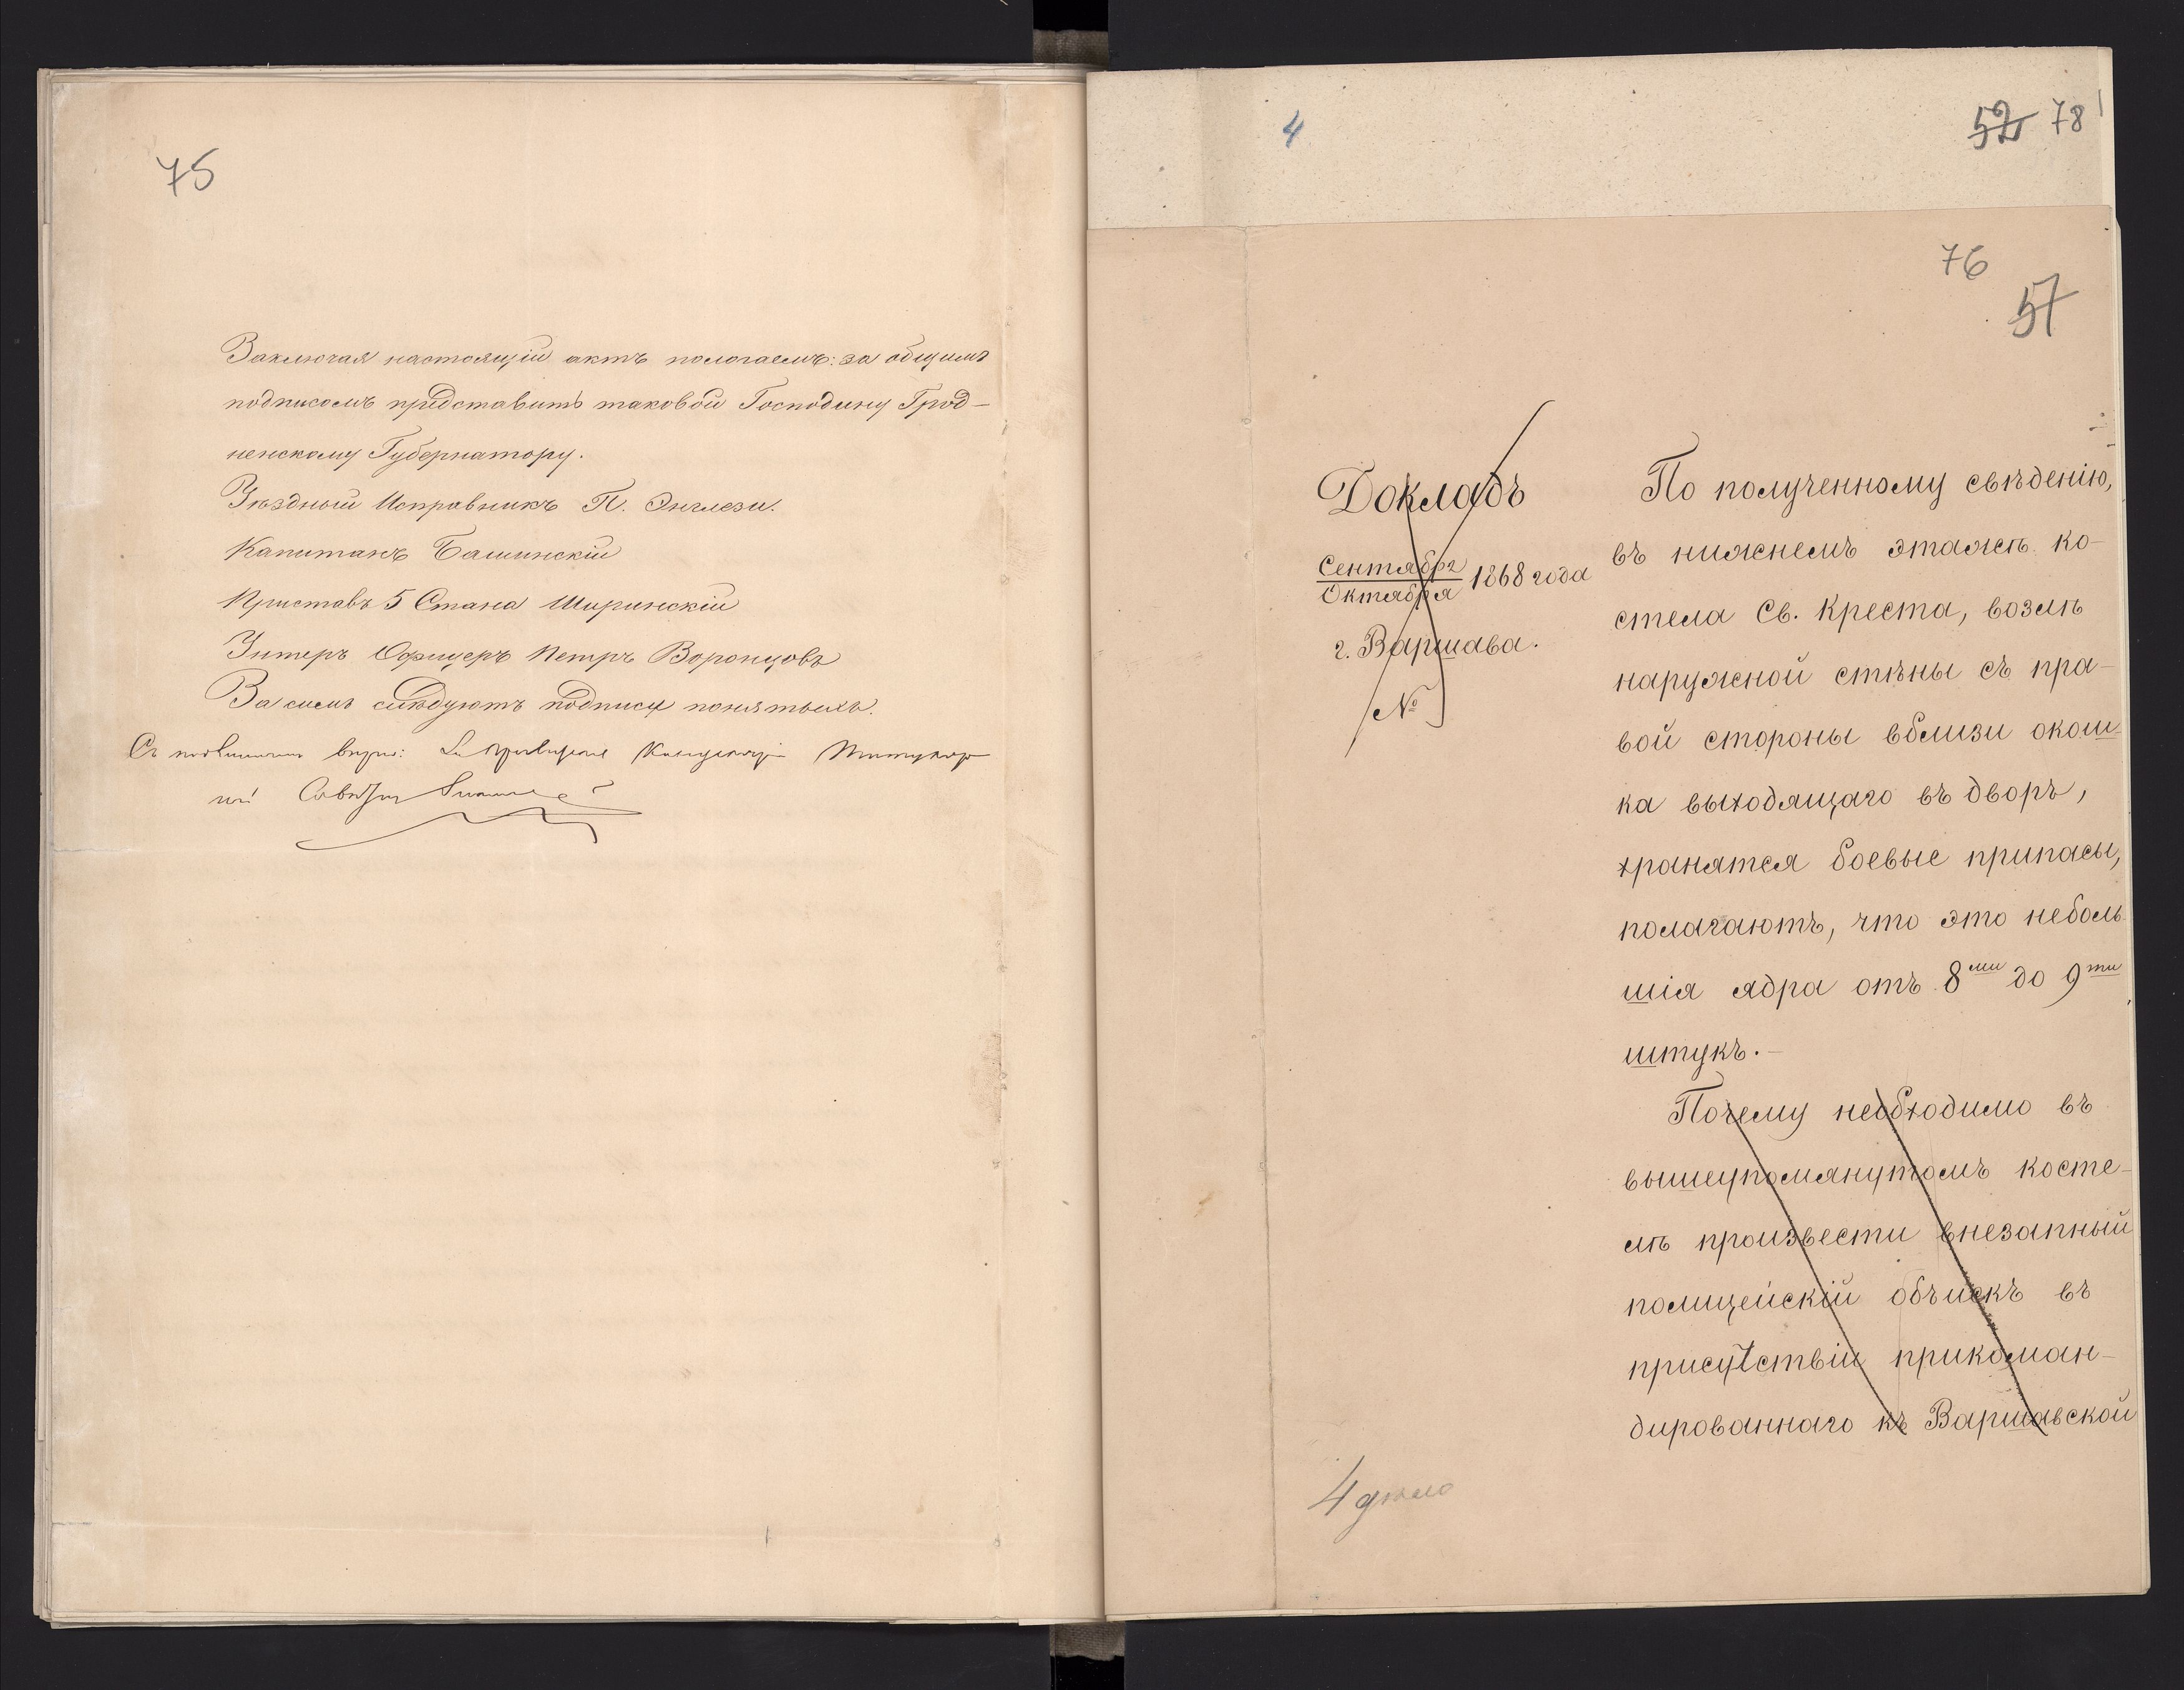 75
Заключая настоящій актъ пологаемъ: за общимъ
подписомъ представить таковой Господину Грод-
ненскому Губернатору.
Уѣздный Исправникъ П. Энглези.
Капитанъ Башинскій
Приставъ 5 Стана Ширинскій
Унтеръ Офицеръ Петръ Воронцовъ
За симъ слѣдуютъ подписи понятыхъ.
Съ подлиннымъ вѣрно:
4
52 78
76
57
Докладъ
Сентября
Октября 1868 года
г. Варшава.
№
По полученному свѣденію,
въ нижнемъ этажѣ ко-
стела Св. Креста, возлѣ
наружной стѣны съ пра-
вой стороны вблизи окош-
ка выходящаго въ дворъ,
хранятся боевые припасы,
полагаютъ, что это неболь-
шія ядра отъ 8ми до 9ти
штукъ.-
Почему необходимо въ
вышеупомянутомъ косте-
лѣ произвести внезапный
полицейскій обыскъ въ
присутствіи прикоман-
дированнаго къ Варшавской
4 дѣло